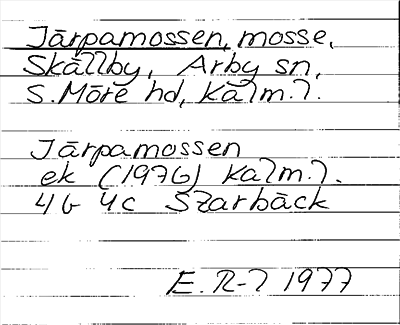 Järpamossen, mosse,
Skällby, Arby sn,
S. Möre hd, Kalm. l.
Järpamossen
ek (1976) Kalm. l.
4G 4c Skarbäck
E. R-l 1977